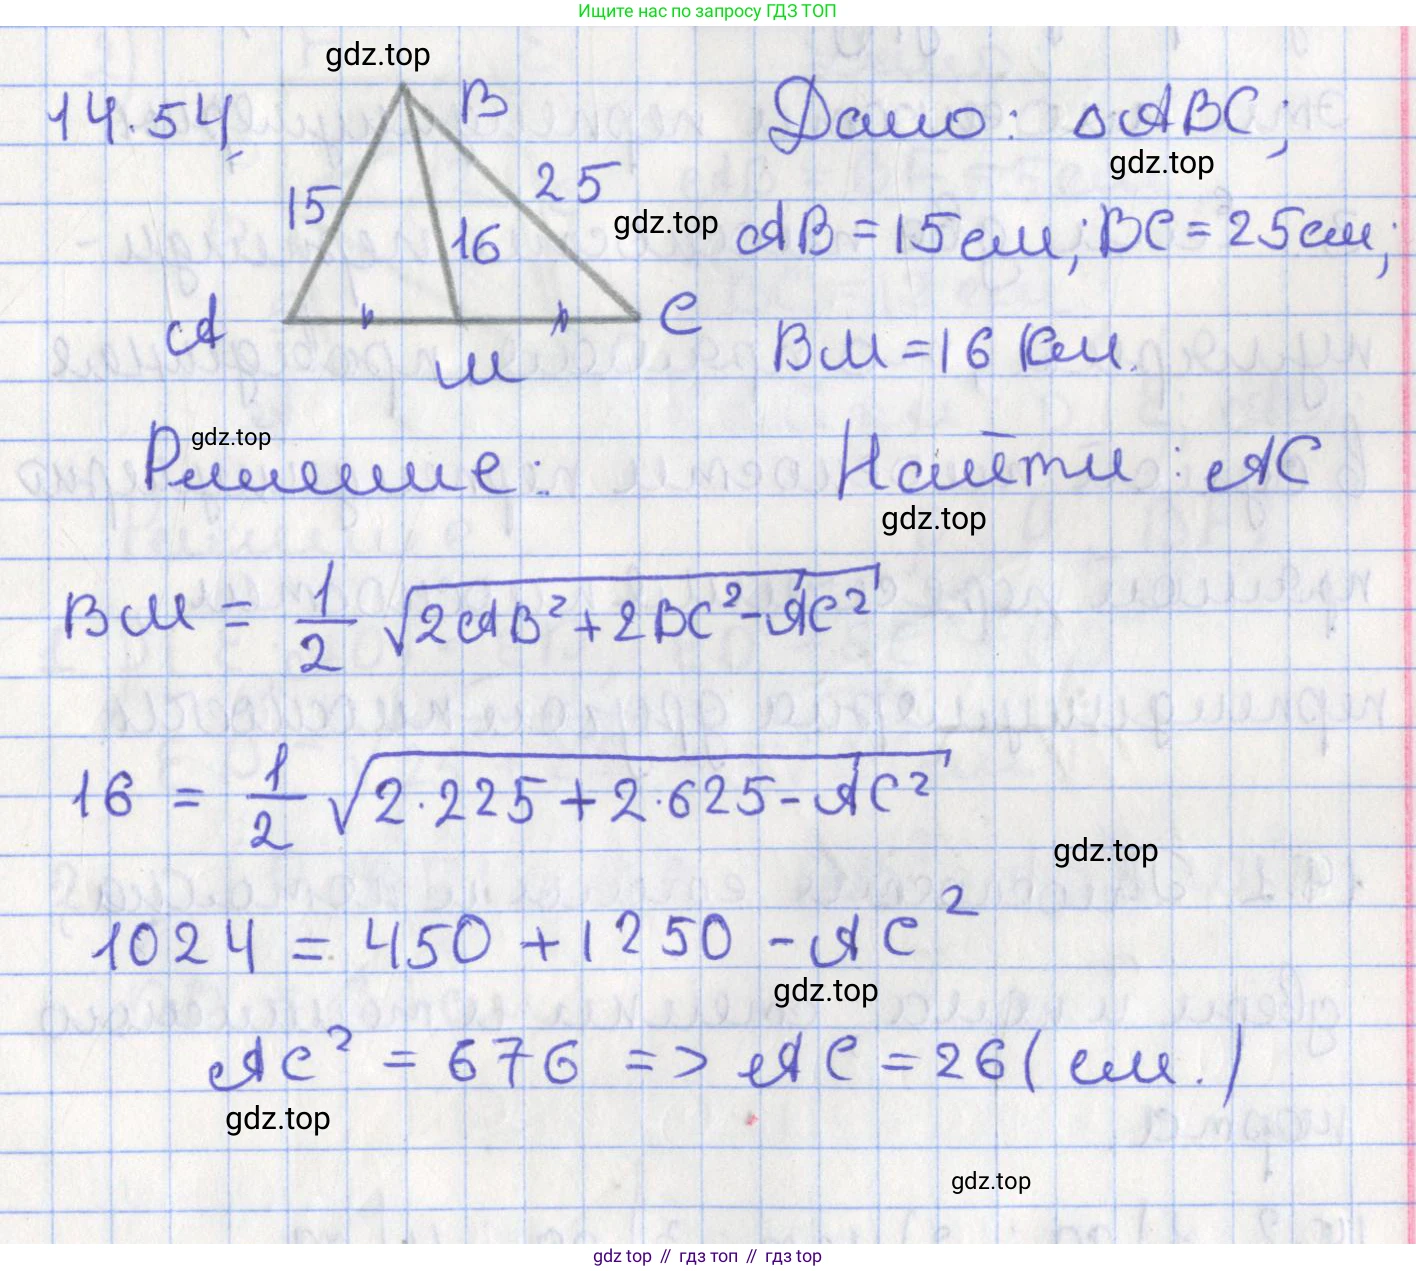 Ищите нас по запросу ГДЗ ТОП
gdz.top
14.54
B
Дано: △ABC;
gdz.top
15
25
gdz.top
16
AB = 15 см; BC = 25 см;
A
C
M
BM = 16 см.
gdz.top
Решение:
Найти: AC
gdz.top
BM = 1/2 √(2AB² + 2BC² - AC²)
16 = 1/2 √(2·225 + 2·625 - AC²)
gdz.top
1024 = 450 + 1250 - AC²
gdz.top
AC² = 676 => AC = 26 (см.)
gdz.top
gdz.top
gdz top // гдз топ // гдз top